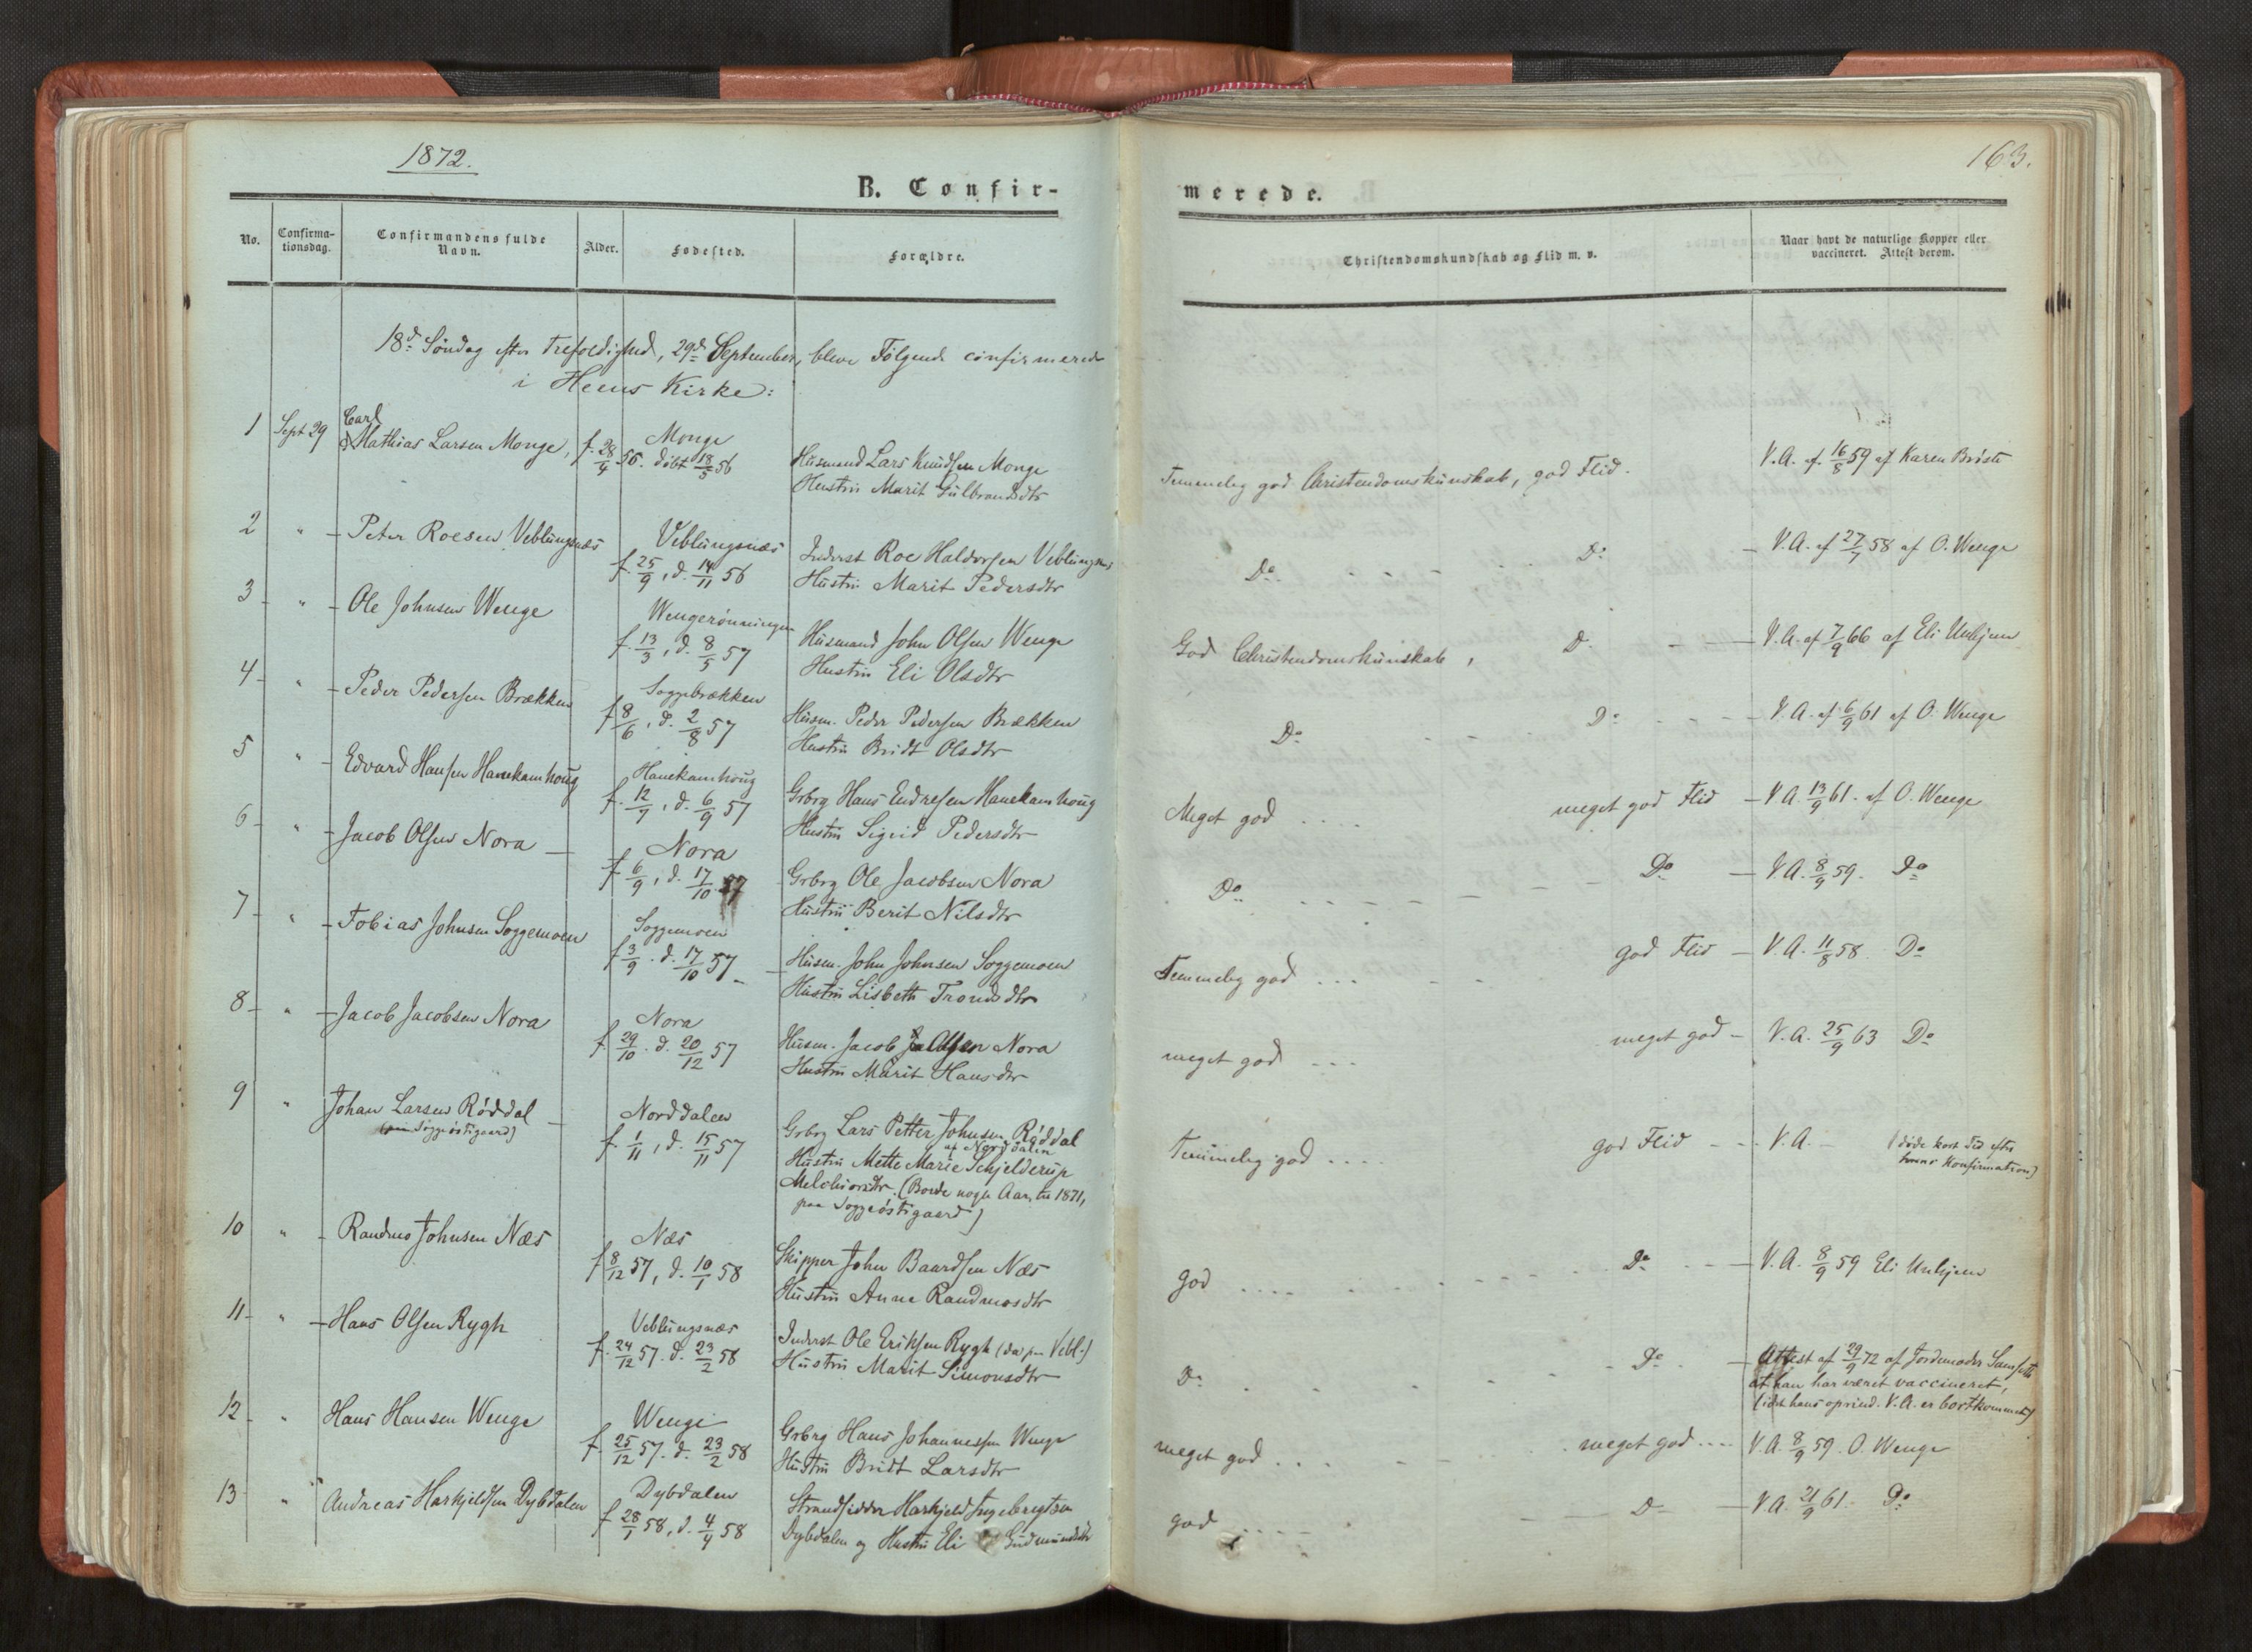 1872.
163.
B. Confir-
merede.
No.
Confirma-
tionsdag.
Confirmandens fulde
Navn.
Alder.
Fødested.
Forældre.
Christendomskundskab og Flid m. v.
Naar havt de naturlige Kopper eller
vaccineret. Attest derom.
18d. Søndag efter Trefoldighed, 29d. September, bleve Følgende confirmerede
i Heens Kirke:
1 Sept 29 Carl
Mathias Larsen Monge, f. 28/4 56. døbt 18/5 56 Monge
Husmand Lars Knudsen Monge
Hustru Marit Gulbrandsdtr
Temmelig god Christendomskunskab, god Flid.
V.A. af 16/8 59 af Karen Brøste
2 " - Peter Roesen Veblungsnæs
Veblungsnæs
f. 25/9, d. 14/11 56
Inderst Roe Haldorsen Veblungsnæs
Hustru Marit Pedersdtr
Do - - - - Do -
V.A. af 27/7 58 af O. Wenge
3 - " - Ole Johnsen Wenge
Wengerønningen
f. 13/3, d. 8/5 57
Husmand John Olsen Wenge
Hustru Eli Olsdtr
God Christendomskunskab, Do - -
V.A. af 7/9 66 af Eli Unhjem
4 - " - Peder Pedersen Brækken
Soggebrækken
f. 8/6, d. 2/8 57
Husm. Peder Pedersen Brækken
Hustru Bridt Olsdtr
Do - - - Do - - -
V.A. af 6/9 61 af O. Wenge
5 " - Edvard Hansen Hanekamhoug
Hanekamhoug
f. 12/7, d. 6/9 57
Grbrg Hans Endresen Hanekamhoug
Hustru Sigrid Pedersdtr
Meget god .... meget god Flid -
V.A. 13/9 61. af O. Wenge
6 - " - Jacob Olsen Nora -
Nora
f. 6/9, d. 17/10 57
Grbrg Ole Jacobsen Nora
Hustru Berit Nilsdtr
Do - - - - Do -
V.A. 8/9 59. Do
7 - " - Tobias Johnsen Soggemoen
Soggemoen
f. 3/9. d. 17/10 57 -
Husm. John Johnsen Soggemoen
Hustru Lisbeth Trondsdtr
Temmelig god ... god Flid -
V.A. 11/8 58 Do
8 - " - Jacob Jacobsen Nora
Nora
f. 29/10. d. 20/12 57
Husm. Jacob Olsen Nora
Hustru Marit Hansdtr
meget god --- meget god -
V.A. 25/9 63 Do
9 " Johan Larsen Røddal -
Soggeøstigaard)
Norddalen
f. 1/11, d. 15/11 57
Grbrg Lars Petter Johnsen Røddal
af Norddalen
Hustru Mette Marie Schjelderup
Melchiorsdtr. (Boede nogle Aar, til 1871,
paa Soggeøstigaard)
Temmelig god .... god Flid - -
V.A. - (døde kort Tid efter
hans Konfirmation)
10 " - Randmo Johnsen Næs
Næs
f. 8/12 57, d. 10/1 58
Skipper John Baardsen Næs
Hustru Anne Randmosdtr
god .... - - - Do - -
V.A. 8/9 59 Eli Unhjem
11 - " - Hans Olsen Rygh
Veblungsnæs
f. 24/12 57. d. 23/2 58
Inderst Ole Eriksen Rygh (da paa Vebl.)
Hustru Marit Simonsdtr
Do - - - - Do -
Attest af 29/9 72 af Jordemoder
at han har været vaccineret,
(idet hans oprind. V.A. er bortkommet)
12 - " Hans Hansen Wenge
Wenge
f. 25/12 57. d. 23/2 58
Grbrg Hans Johannessen Wenge
Hustru Bridt Larsdtr
meget god ... meget god ....
V.A. 8/9 59. O. Wenge
13 - " Andreas Harkjeldsen Dybdalen
Dybdalen
f. 28/1 58, d. 4/4 58
Strandsidder Harkjeld Ingebregtsen
Dybdalen og Hustru Eli Gudmundsdtr
god .... - - Do -
V.A. 21/9 61 - Do